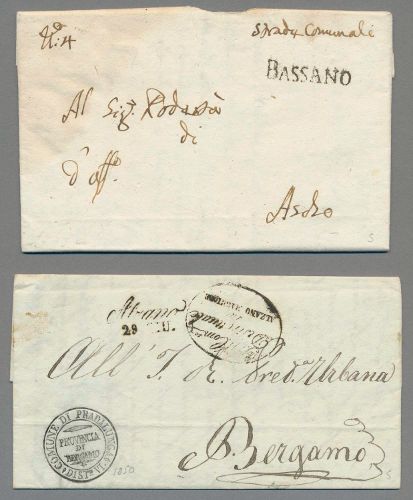 N:4
Strada Comunale
BASSANO
Al Sig.r Podestà
di
d'aff.o
Asolo
Alzano
29 GIU.
ALZANO MAGGIORE
All' I. R. Pret.a Urbana
Bergamo
COMUNE DI PRADALUNGA DIST.
PROVINCIA
DI
BERGAMO
1850